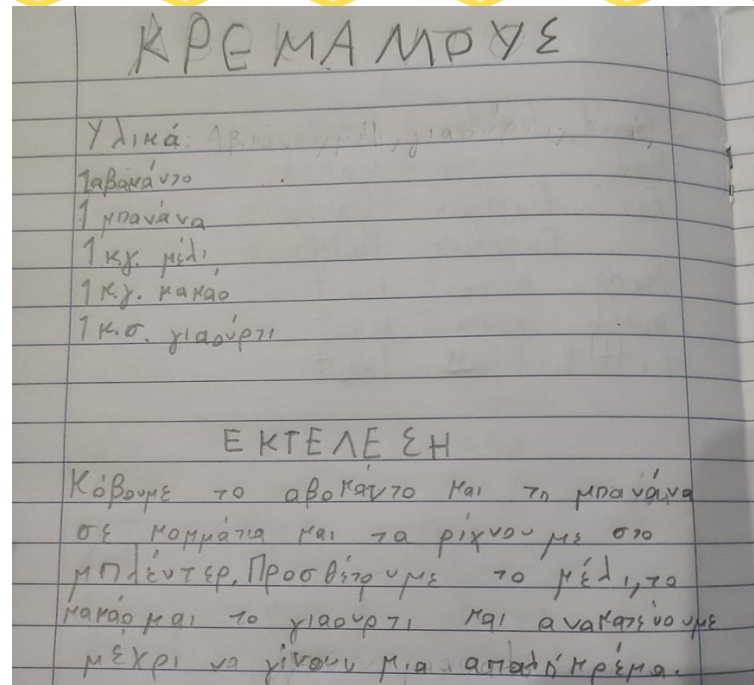 ΚΡΕΜΑ ΜΟΥΣ
Υλικά:
1αβακάντο
1 μπανάνα
1 κ.γ. μέλι
1 κ.γ. κακάο
1 κ.σ. γιαούρτι
ΕΚΤΕΛΕΣΗ
Κόβουμε το αβοκάντο και τη μπανάνα
σε κομμάτια και τα ρίχνουμε στο
μπλέντερ. Προσθέτουμε το μέλι, το
κακάο και το γιαούρτι και ανακατεύουμε
μέχρι να γίνουν μια απαλή κρέμα.